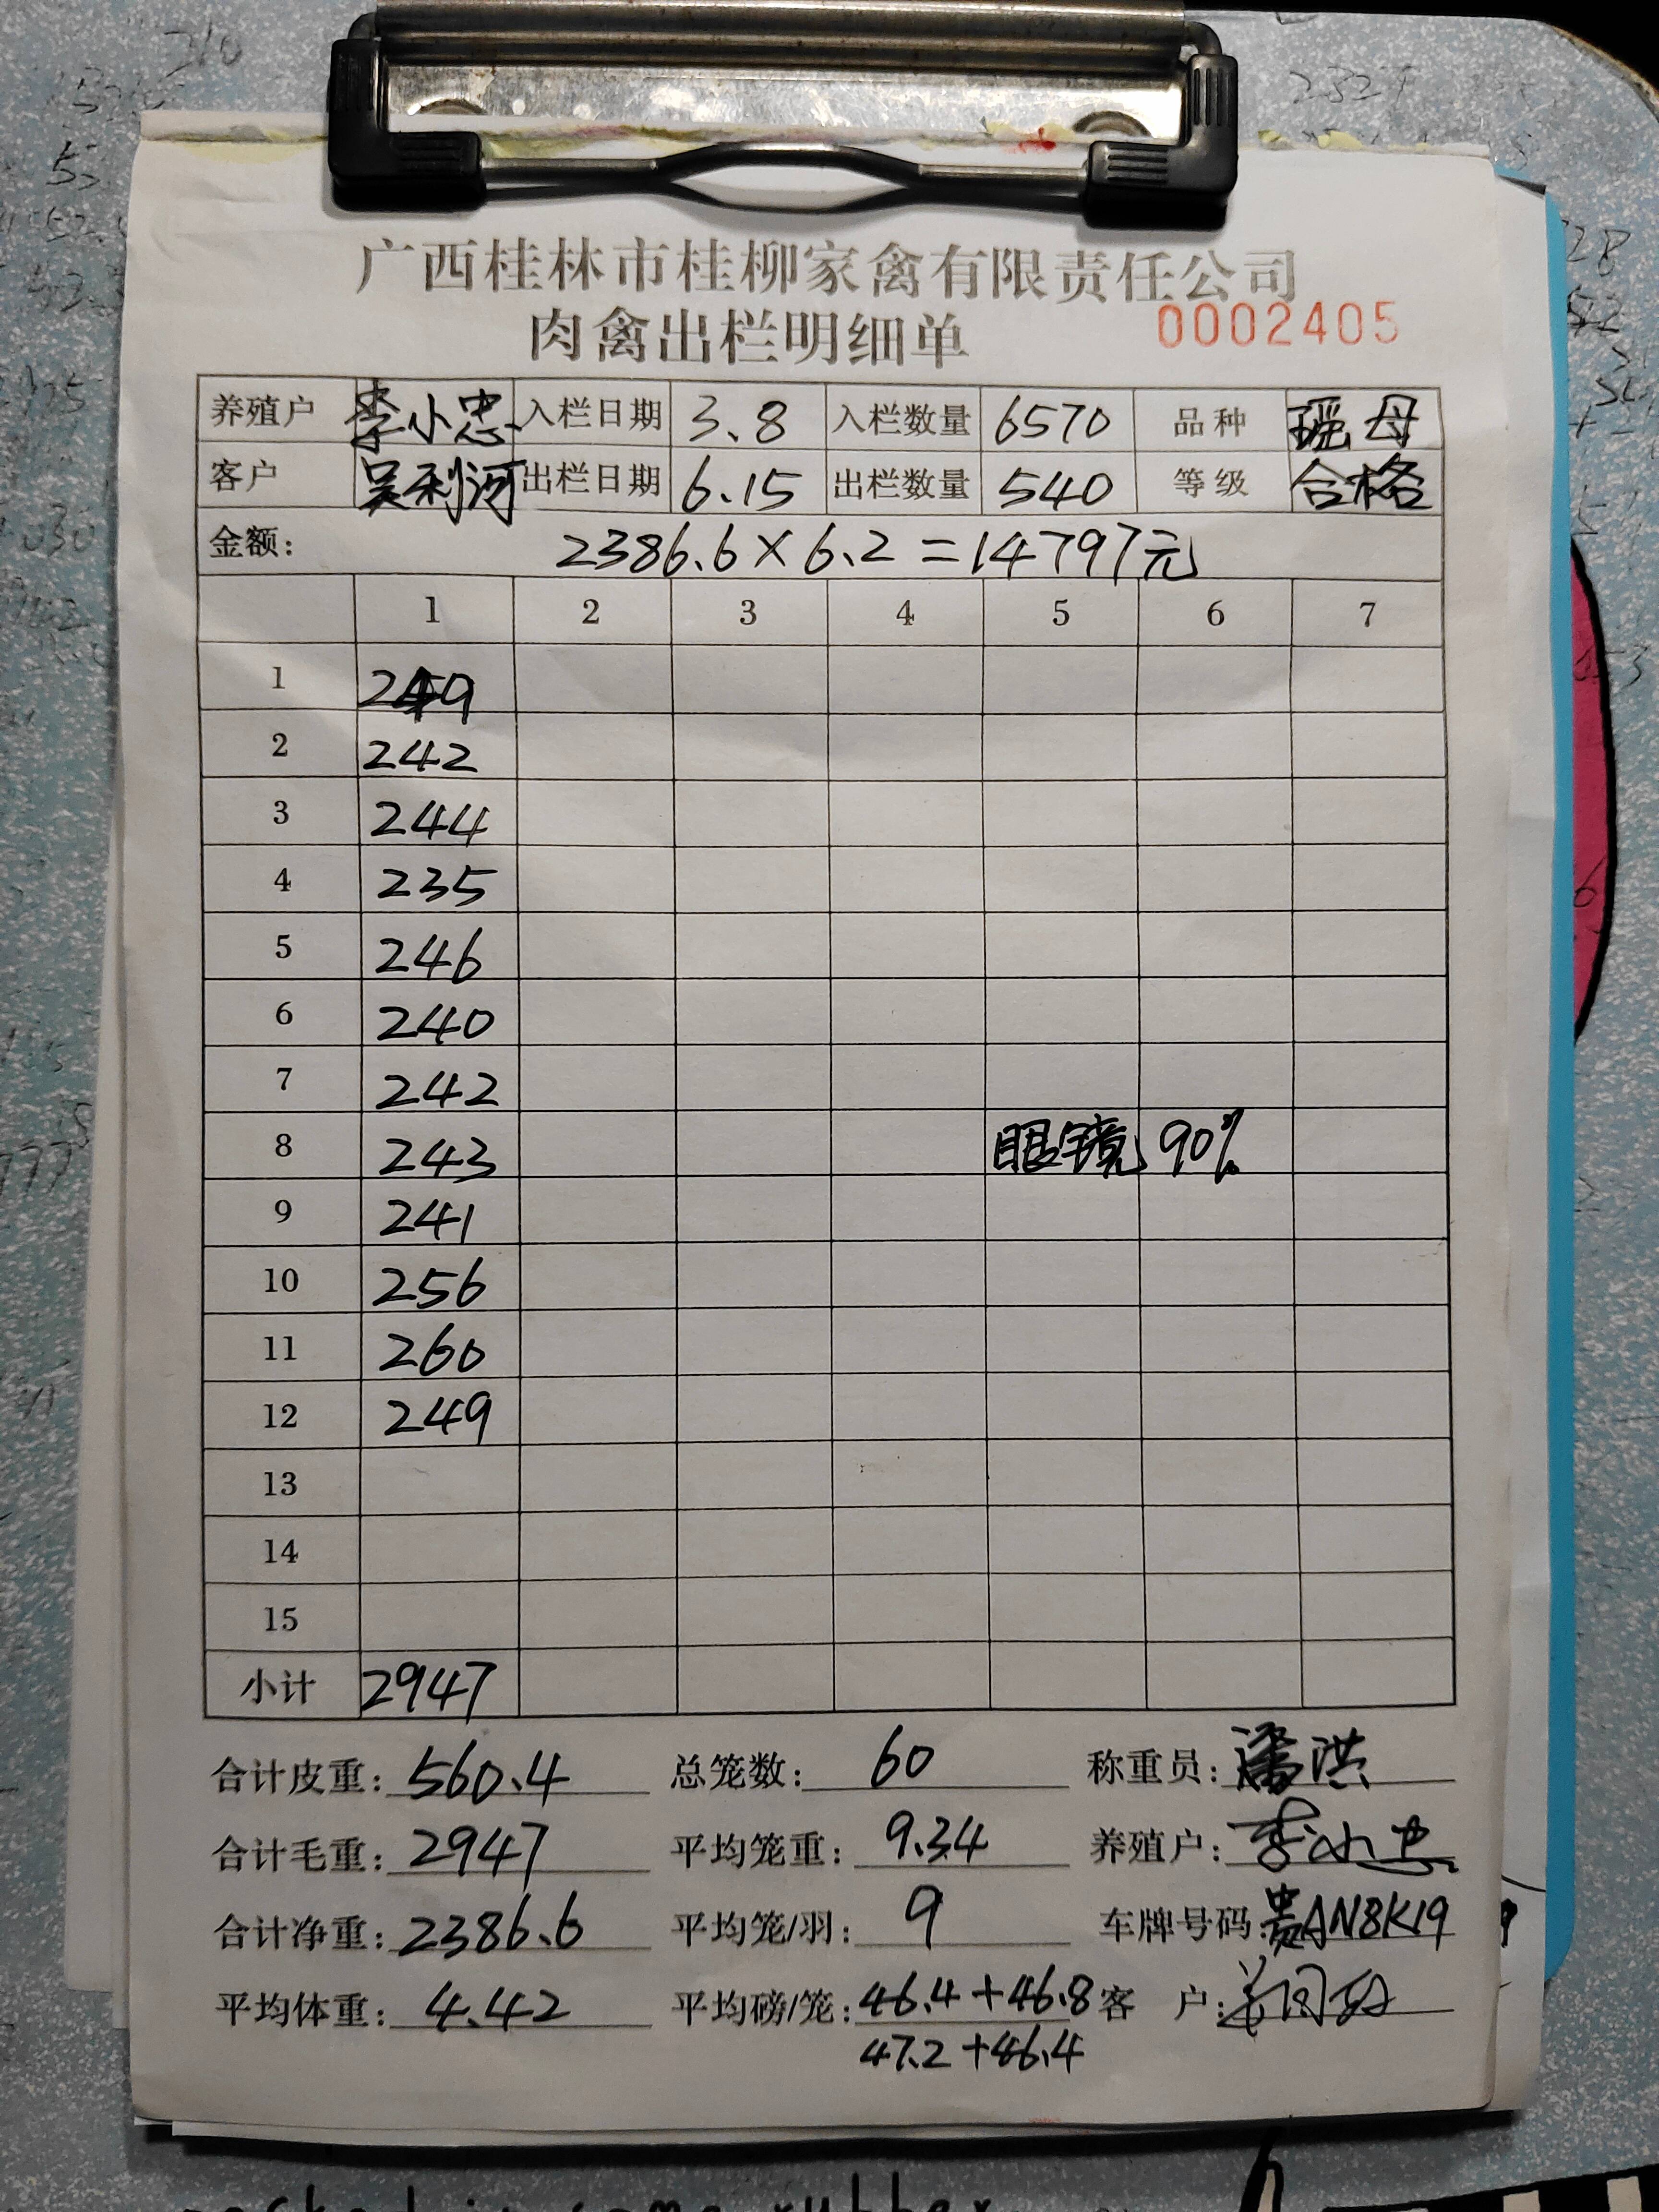 广西桂林市桂柳家禽有限责任公司
肉禽出栏明细单 0002405
养殖户 李小忠 入栏日期 3.8 入栏数量 6570 品种 瑶母
客户 吴利河 出栏日期 6.15 出栏数量 540 等级 合格
金额: 2386.6×6.2=14797元
1 2 3 4 5 6 7
1 249
2 242
3 244
4 235
5 246
6 240
7 242
8 243 眼镜 90%
9 241
10 256
11 260
12 249
13
14
15
小计 2947
合计皮重: 560.4 总笼数: 60 称重员: 潘洪
合计毛重: 2947 平均笼重: 9.34 养殖户: 李小忠
合计净重: 2386.6 平均笼/羽: 9 车牌号码: 贵AN8K19
平均体重: 4.42 平均磅/笼: 46.4+46.8 客 户:
47.2+46.4